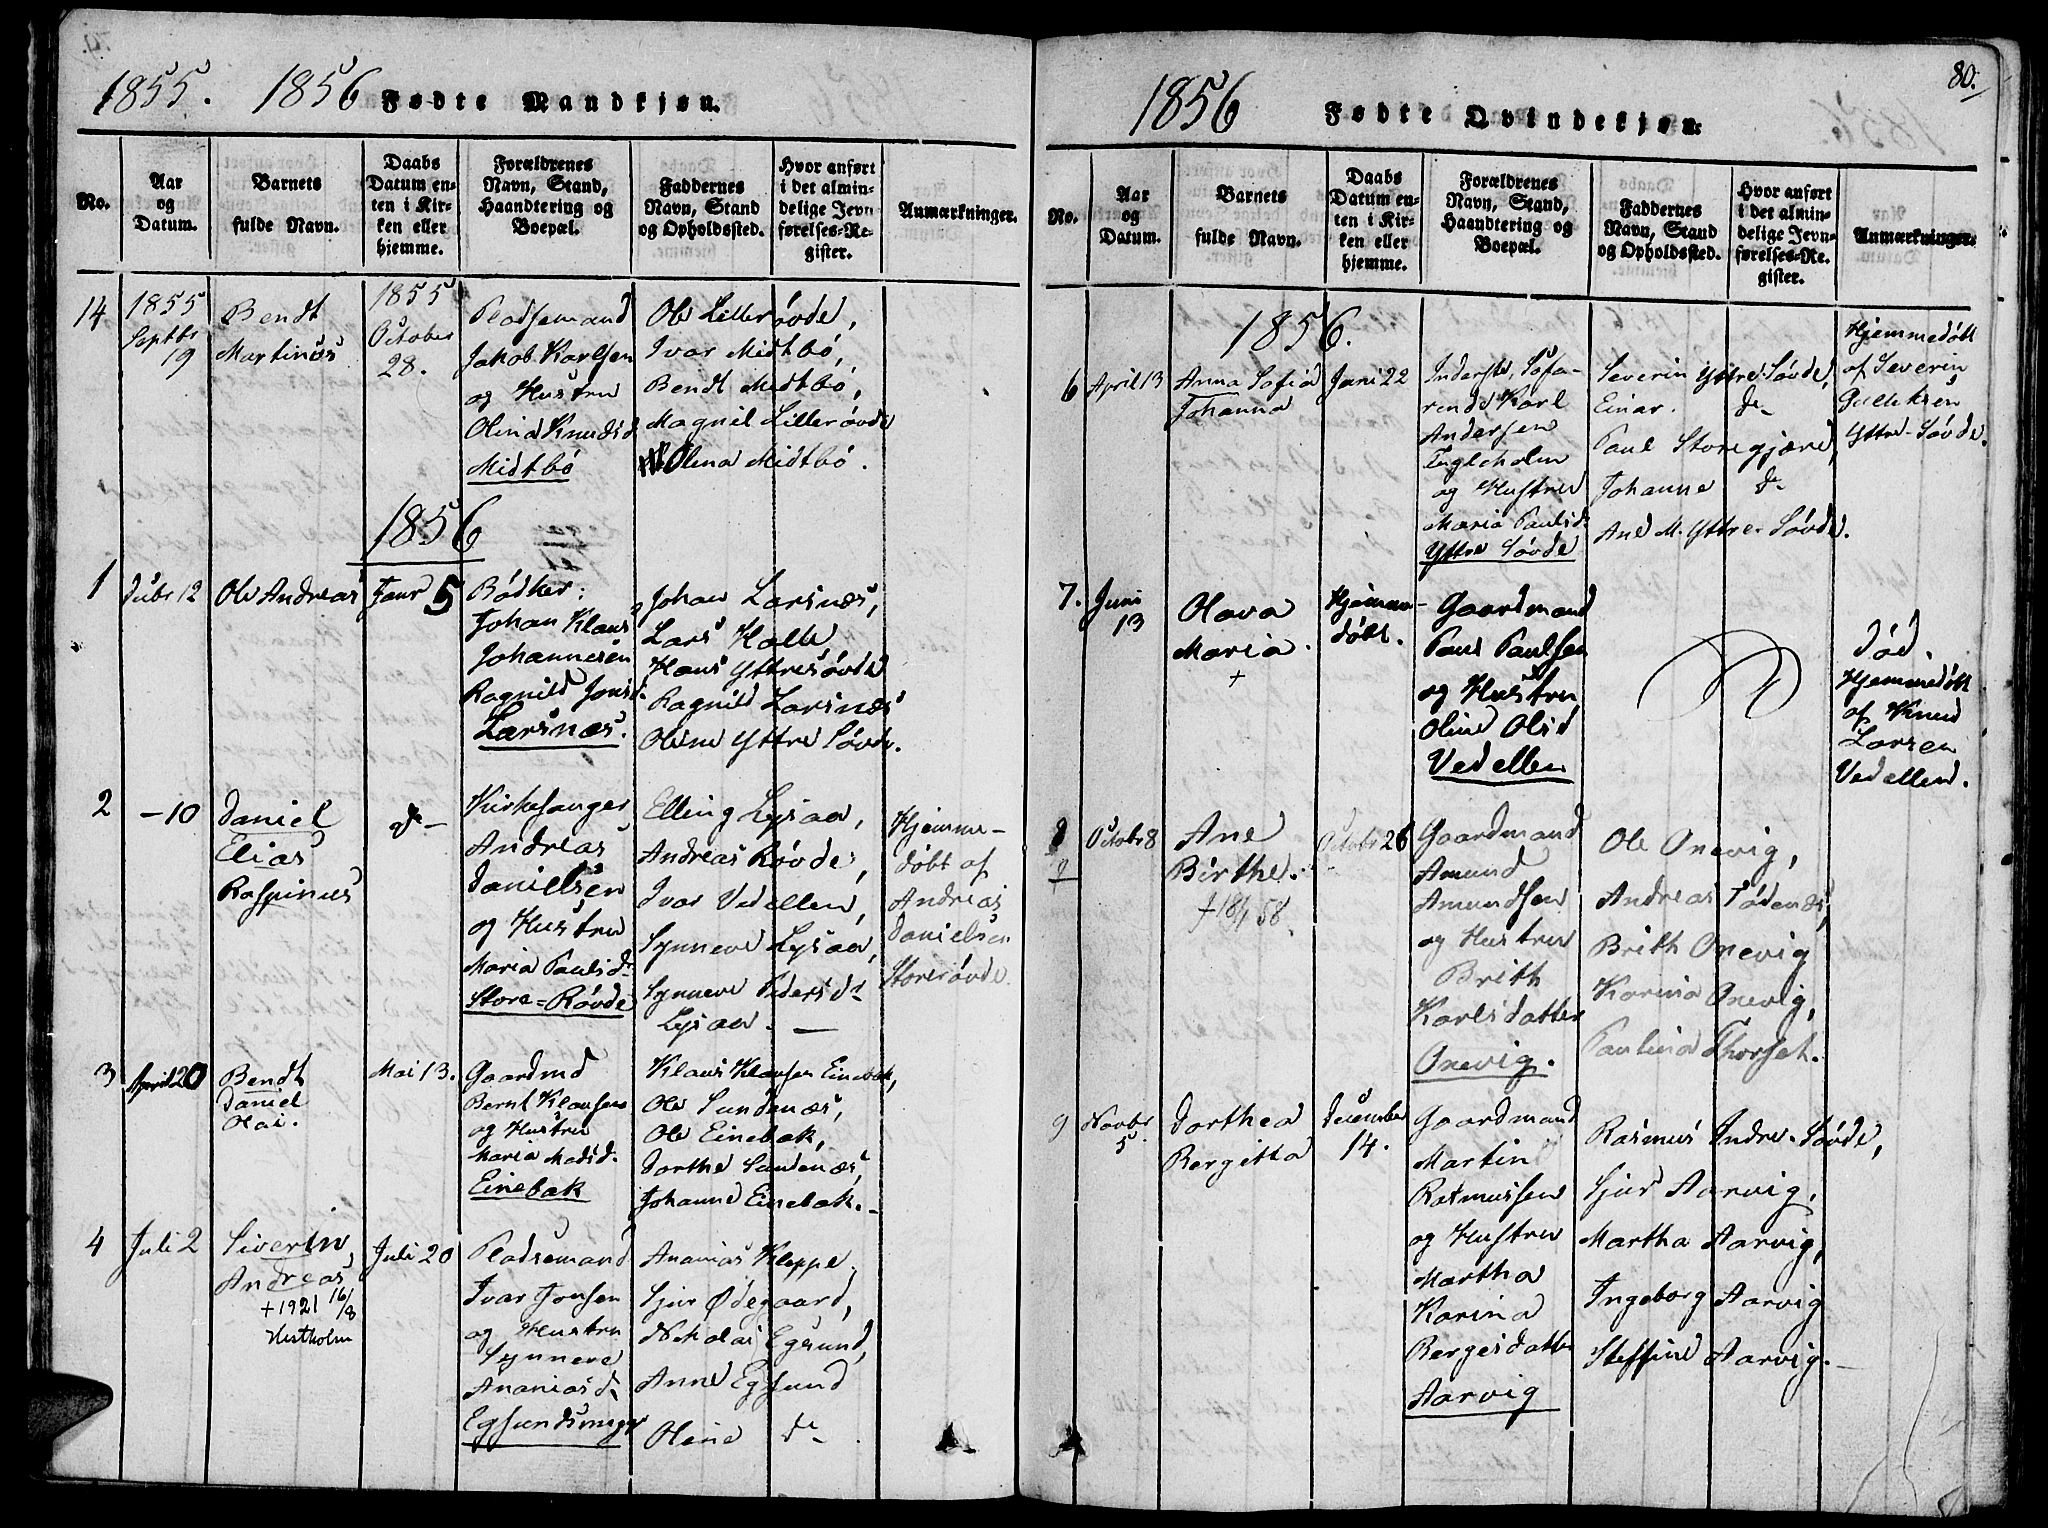 1855. 1856 Fødte Mandkjøn.
No.
Aar
og
Datum.
Barnets
fulde Navn.
Daabs
Datum en-
ten i Kir-
ken eller
hjemme.
Forældrenes
Navn, Stand,
Haandtering og
Boepæl.
Faddernes
Navn, Stand
og Opholdssted.
Hvor anført
i det almin-
delige Jevn
førelses-Re-
gister.
Anmærkninger.
14
1855
Septbr
19
Bendt
Martinus
1855
October
28.
Pladsemand
Jakob Karlsen
og Hustru
Olina Knudsd
Midtbö
Ole Lillerövde,
Ivar Midtbö,
Bendt Midtbö,
Magnil Lillerövde
Olena Midtbö.
1856
1
12
Ole Andreas
Janr 5
Bödker:
Johan Klaus
Johannesen
Ragnild Jonsd.
Larsnæs.
Johan Larsnæs,
Lars Kolle
Hans Yttresövde
Ragnild Larsnæs
Olene Yttre Sövde.
2
-10
Daniel
Elias
Raspinus
d-
Kirkesanger
Andreas
Danielsen
og Hustru
Maria Paulsd-
Store-Rövde
Elling Lysaa,
Andreas Rövde,
Ivar Vedellen,
Synneve Lysaa,
Synneve Pedersd-
Lysaa. —
Hjemme-
döbt af
Andreas
Danielsen
Storerövde.
3
April 20
Bendt
Daniel
Olai.
Mai 13.
Gaardmd
Bernt Klausen
og Hustru
Maria Madsd.
Einebak
Klaus Klausen Einebak,
Ole Sundnæs,
Ole Einebak,
Dorthe Sundnæs,
Johanne Einebak.-
4
Juli 2
Siverin
Andreas
+1921 16/8
Hestholm
Juli 20
Pladsemand
Ivar Jonsen
og Hustru
Synneve
Ananiasd-
Egsundsmyr
Ananias Kleppe,
Sjur Ødegaard,
Nikolai Egsund,
Anne Egsund
Oline d-
80.
1856 Fødte Qvindekjøn.
No.
Aar
og
Datum.
Barnets
fulde Navn.
Daabs
Datum en-
ten i Kir-
ken eller
hjemme.
Forældrenes
Navn, Stand,
Haandtering og
Boepæl.
Faddernes
Navn, Stand
og Opholdssted.
Hvor anført
i det almin-
delige Jevn-
førelses-Re-
gister.
Anmærkninger.
1856.
6
April 13
Anna Sofia
Johanna
Juni 22
Inderste, Söfa-
rende Karl
Andersen
Engleholm
og Hustru
Maria Paulsd-
Yttre Sövde
Severin Yttre-Sövde,
Einar. d-
Paul Storegjære,
Johanne d-
Ane M. Yttre-Sövde.
Hjemmedöbt
af Severin
Gulliksen
Yttre-Sövde.
7.
Juni
13
Olava
Maria.
+
Hjemme-
döbt.
Gaardmand
Paul Paulsen
og Hustru
Oline Olsd
Vedellen
Död.
Hjemmedöbt
af Knud
Larsen
Vedellen.
8
October 8
Ane
Birthe.
+18/1 58.
Octobr 26
Gaardmand
Amund
Amundsen
og Hustru
Brith
Karlsdatter
Onevig.
Ole Onevig,
Andreas Tödenæs,
Brith Onevig
Karina Onevig,
Paulina Thorset.
9
Novbr
5.
Dorthea
Bergitta
December
14.
Gaardmand
Martin
Rasmussen
og Hustru
Martha
Karina
Bergesdatter
Aarvig
Rasmus Indre-Sövde,
Sjur Aarvig,
Martha Aarvig,
Ingeborg Aarvig
Steffine Aarvig.-